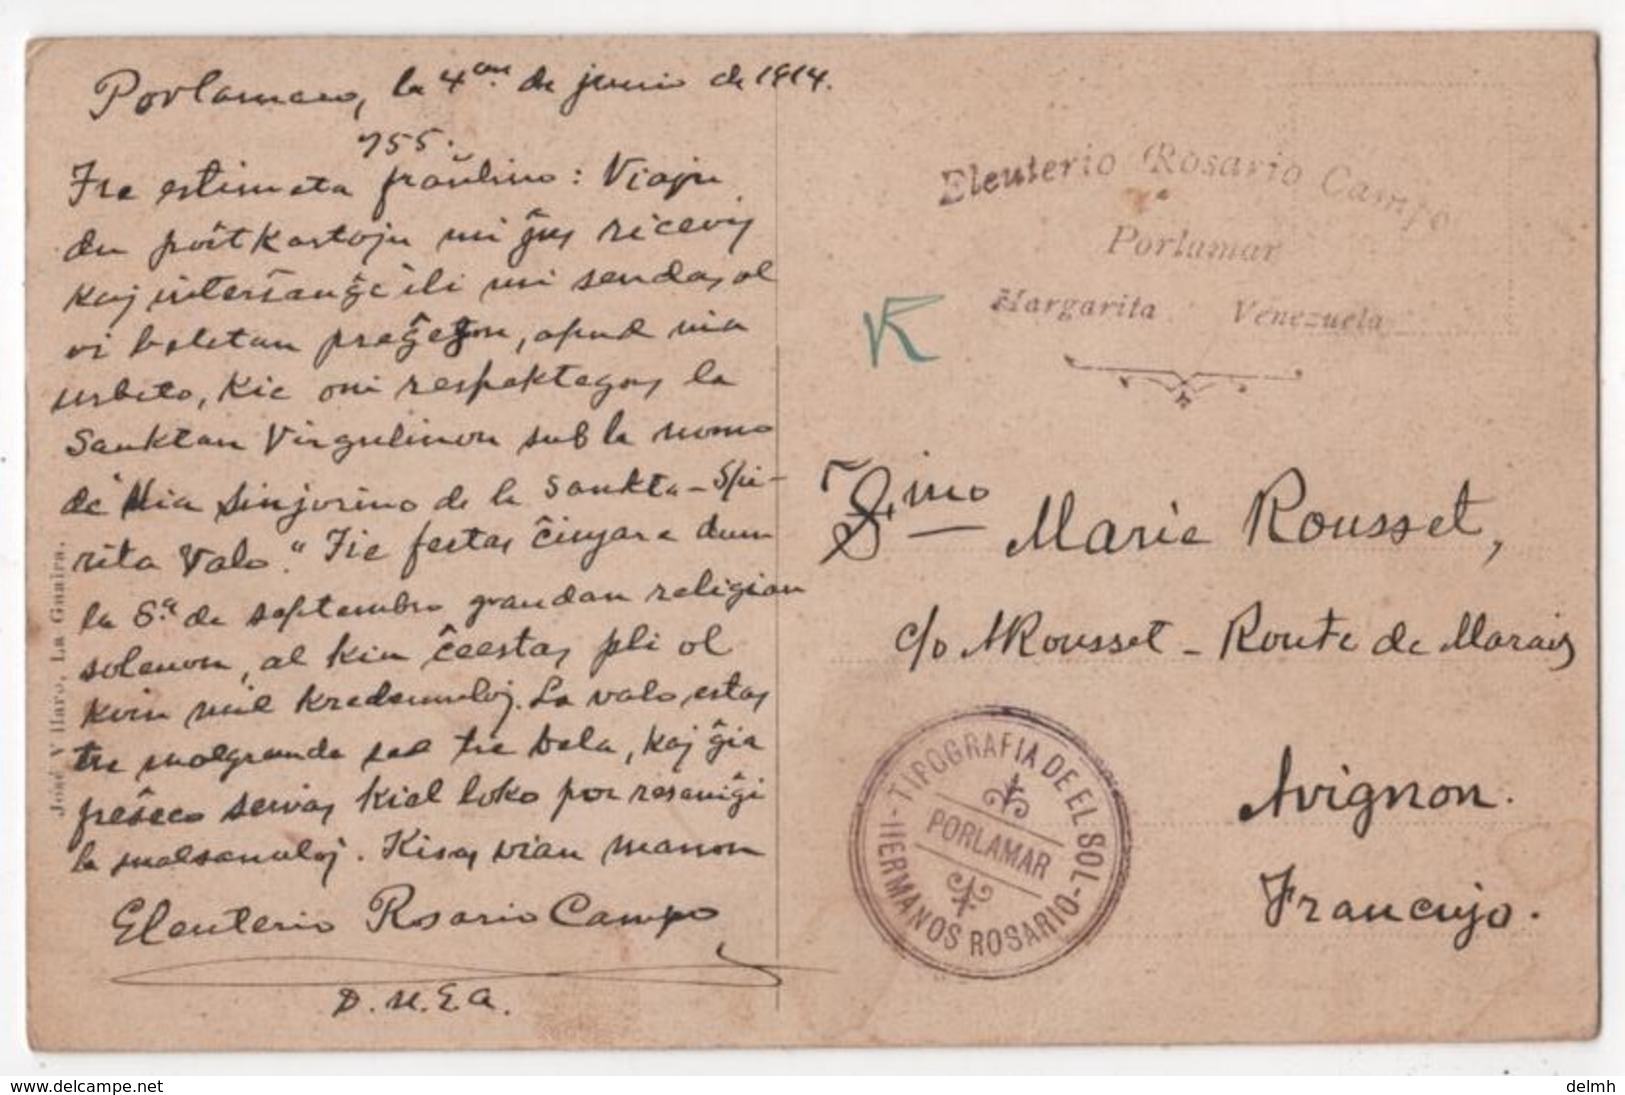 Porlamaro, la 4an. de junio de 1914.
755.
Tre estimata fraŭlino: Viajn
du poŝtkartojn mi ĝus ricevis
kaj interŝanĝe ili mi sendas al
vi beletan preĝejon, apud mia
urbeto, kie oni respektegas la
Sanktan Virgulinon sub la nomo
de "Nia Sinjorino de la Sankta-Spi-
rita Valo." Tie festas ĉiujare dum
la 8a. de septembro grandan religian
solenon, al kiu ĉeestas pli ol
kvin mil kredemuloj. La valo estas
tre malgranda sed tie bela, kaj ĝia
freŝeco servas kiel loko por resaniĝi
la malsanuloj. Kisas vian manon
Eleuterio Rosario Campo
D.U.E.A.
José Villaro, La Guaira.
Eleuterio Rosario Campo
Porlamar
Margarita Venezuela
K
F.ino Marie Rousset,
c/o Rousset - Route de Marais
Avignon.
Francujo.
TIPOGRAFIA DE EL SOL
PORLAMAR
HERMANOS ROSARIO
www.delcampe.net
delmh